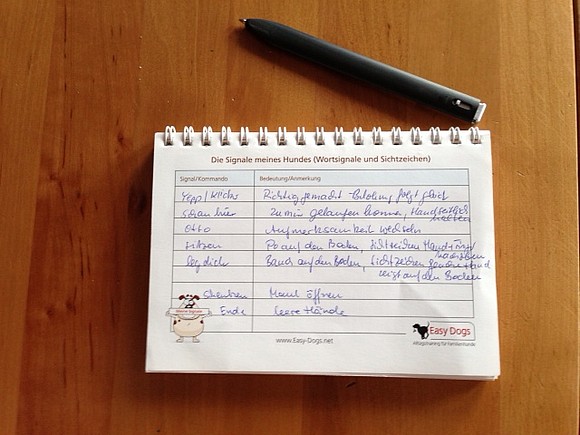 Die Signale meines Hundes (Wortsignale und Sichtzeichen)
Signal/Kommando Bedeutung/Anmerkung
Yepp/ Richtig gemacht - Belohnung folgt gleich
schau hier Zu mir gelaufen kommen, Hand seitlich
halten
Otto Aufmerksamkeit wechseln
sitzen Po auf den Boden, Sichtzeichen Hand
nach oben
leg dich Bauch auf den Boden, Sichtzeichen Hand
zeigt auf den Boden
Maul öffnen
Ende leere Hände
Meine Signale
www.Easy-Dogs.net
Easy Dogs
Alltagstraining für Familienhunde